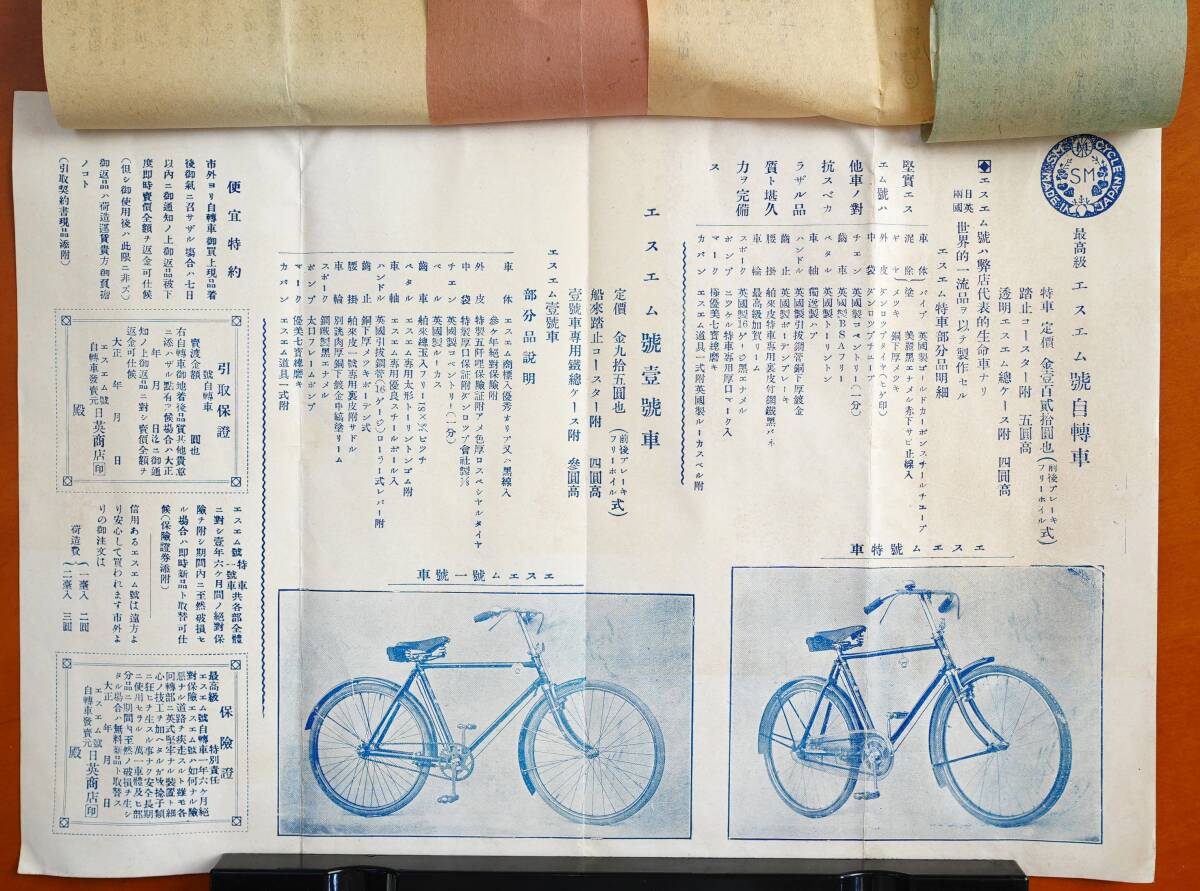 SM CYCLE
SM
MADE IN JAPAN
最高級 エスエム號自轉車
特車 定價 金壹百貳拾圓也(前後ブレーキフリーホイル式)
踏止コースター附 五圓高
透明エスエム總ケース附 四圓高
エスエム號ハ弊店代表的生命車ナリ
日英兩國世界的一流品ヲ以テ製作セル
エスエム特車部分品明細
堅實エス
エム號ハ
他車ノ對
抗スベカ
ラザル品
質ト堪久
力ヲ完備
ス
車体 パイプ 英國製ゴールドカーボンスチールチューブ
外皮 ダンロツプタイヤ(ヒゲ印)
中袋 ダンロツプチユーブ
チエン 英國製コベントリー(一分)
齒車 英國製BSAフリー
ペタル 英國製トーリントン
車軸 獨逸製ハブ
ハンドル 英國製引拔鋼管銅下厚鍍金
齒止 英國製ボーデンブレーキ
腰掛 舶來特車專用裏皮付鋼鐵黑バネ
車輪 最高級加賀リーム
スポーク 英國製16ゲージ黑エナメル
ポンプ ニツケル特車專用厚口マーク入
マーク 極優美七寶總磨キ
カバン エスエム道具一式附英國製ルーカスベル附
エスエム號壹號車
定價 金九拾五圓也(前後ブレーキフリーホイル式)
船來踏止コースター附 四圓高
壹號車專用鐵總ケース附 參圓高
エスエム壹號車
部分品說明
車体 エスエム商標入優秀オリーブ又ハ黑線入
參ケ年絕對保險附
外皮 特製五阡哩保險証附アメ色厚口スペシヤルタイヤ
中袋 特製厚口保証附ダンロツプ會社製
チエン 英國製コベントリー(一分)
ベル 英國製ルーカス
齒車 舶來總玉入フリー18×½ピツチ
ペタル エスエム專用太形トーリントンゴム附
車軸 エスエム專用優良スチールボール入
ハンドル 英國引拔鋼管(16ゲージ)ローラー式レバー附
齒止 銅下厚メツキボーデン式
腰掛 舶來皮一號專用裏皮附サドル
車輪 別銑肉厚銅下鍍金中縞塗リーム
スポーク 鋼鐵製黑エナメル
ポンプ 太口フレームポンプ
マーク 優美七寶總磨キ
カバン エスエム道具一式附
エスエム號特車
エスエム號一號車
便宜特約
市外ヨリ自轉車御買上現品着
後御氣ニ召サザル塲合ハ七日
以内ニ御通知ノ上御返品被下
度即時賣價全額ヲ返金可仕候
(但シ御使用後ハ此限ニ非ズ)
御返品ハ荷造運賃貴方御負擔
ノコト
(引取契約書現品添附)
引取保證
賣渡金額 圓也
號自轉車
右自轉車御地着後品質其他貴意
ニ添ハザル點有ラバ候塲合ハ大正
年 月 日迄ニ御通
知ノ上御返品ニ對シ賣價全額ヲ
返金可仕候
大正 年 月 日
エスエム號
自轉車發賣元 日英商店 印
殿
エスエム號特車一號車共各部全體
ニ對シ壹年六ケ月間ノ絕對保
險ヲ附シ期間内ニ至然破損セ
ル塲合ハ即時新品ト取替可仕
候(保險證券添附)
信用あるエスエム號は遠方よ
り安心して買われます市外よ
りの御注文は
荷造費(一臺入 二圓
二臺入 三圓
保險證
特別責任
最高級エスエム號自轉車一年六ケ月絕
對保險エスエム號ハ如何ナル險
惡ナル道路ヲ疾走スルト雖モ各
回轉部ニ英式堅牢ナル装置ト細
心ノ技工ヲ加ヘタルガ故捻子類
ニ狂ヒヲ生スル事ナク安全長期
ニ使用セラル 萬一車體及ヒ部
分品ニ期間内至然ノ破損ヲ生シ
タル塲合ハ無料新品ト取替ス
大正 年 月 日
エスエム號
自轉車發賣元 日英商店 印
殿